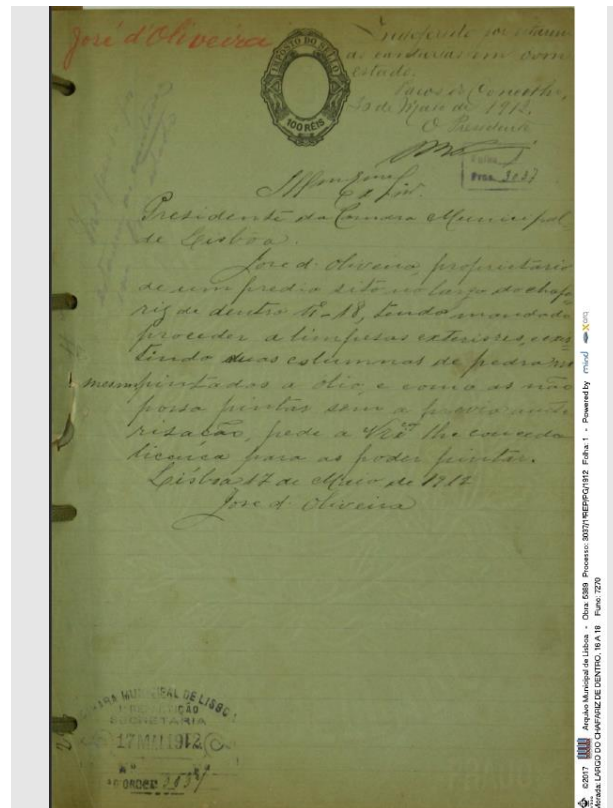 José d'Oliveira
Indeferido por estarem
as cantarias em bom
estado.
Paços do Concelho,
de Maio de 1912.
O Presidente
IMPOSTO DO SELLO
100 RÉIS
Proc. 3037
Illmo Exmo
Ex Snr.
Presidente da Camara Municipal
de Lisboa.
José d'Oliveira, proprietario
de um predio sito no largo do chafa
riz de dentro Nº 18, tendo mandado
proceder a limpesas exteriores, exis
tindo duas columnas de pedra no
mesmo pintadas a olio, e como as não
possa pintar sem a previa auto
risação, pede a V. Excia lhe conceda
licença para as poder pintar.
Lisboa 17 de Maio de 1912
José d'Oliveira
CAMARA MUNICIPAL DE LISBOA
1ª REPARTIÇÃO
SECRETARIA
17 MAI 1912
Nº
DE ORDEM 3037
©2017 Arquivo Municipal de Lisboa - Obra: 5389 Processo: 3037/1ªREP/PG/1912 Folha: 1 - Powered by mind
Morada: LARGO DO CHAFARIZ DE DENTRO, 16 A 18 Func: 7270